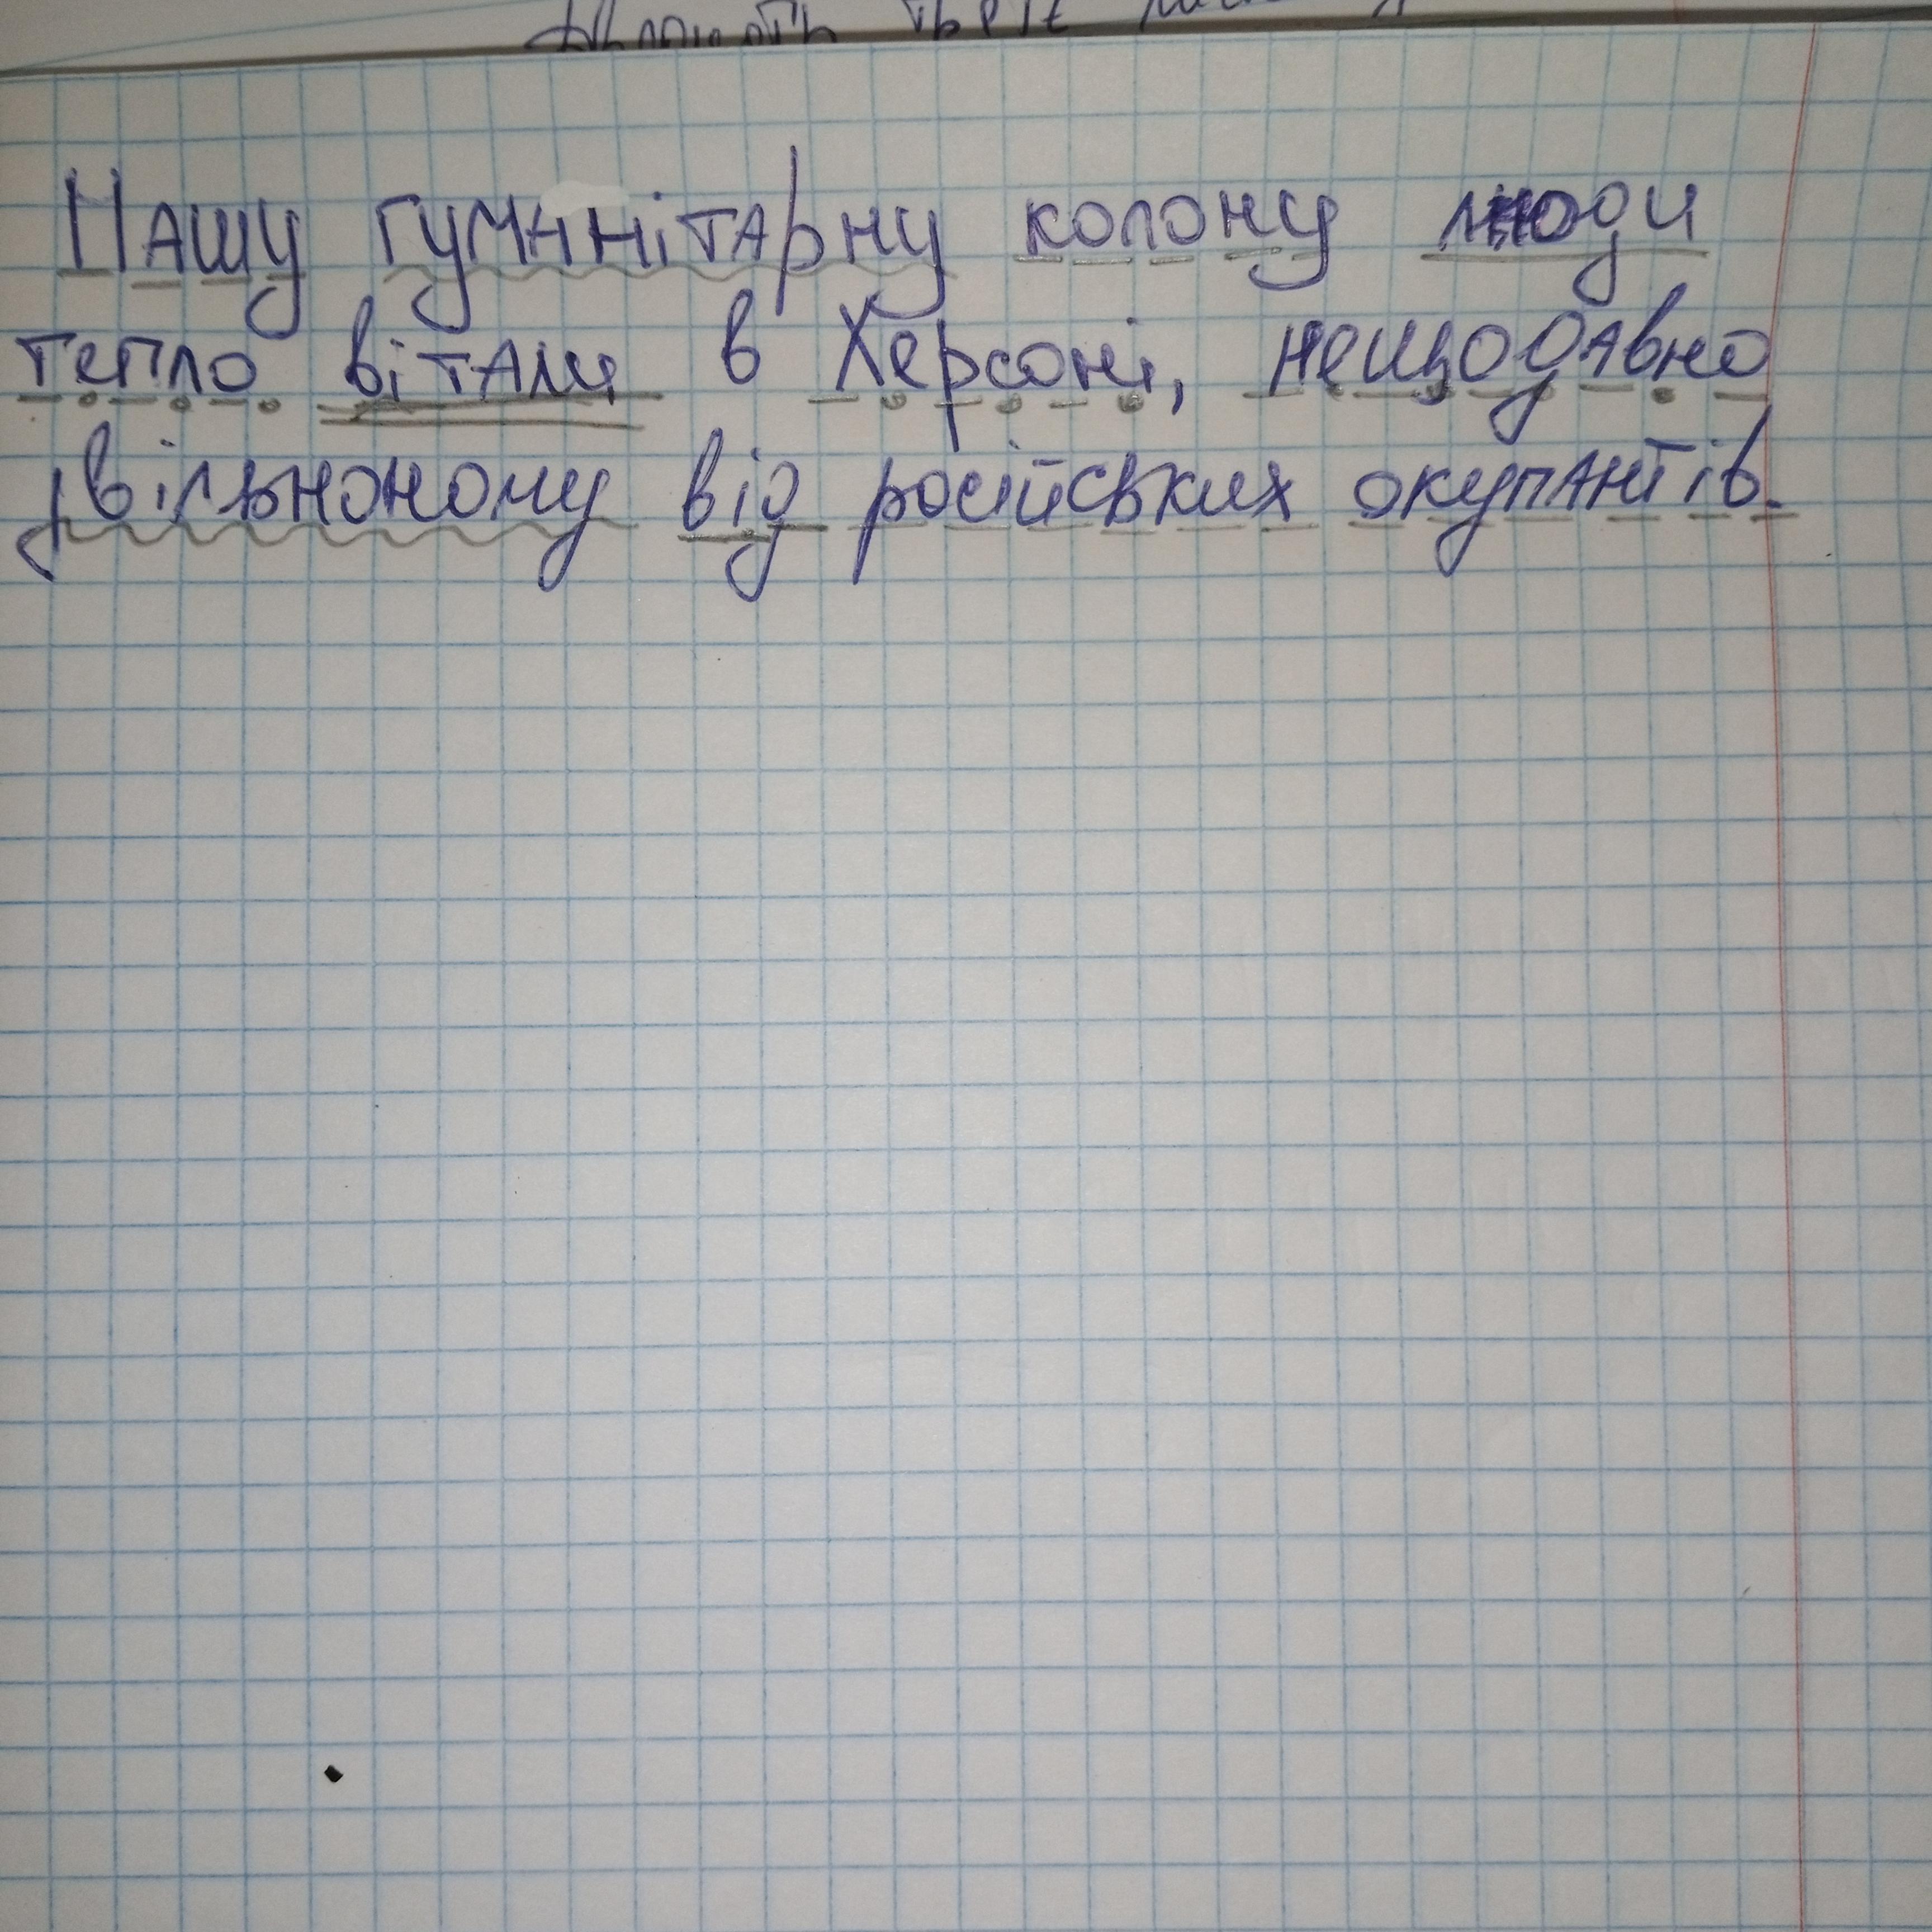 Нашу гуманітарну колону люди
тепло вітали в Херсоні, нещодавно
звільноному від російських окупантів.